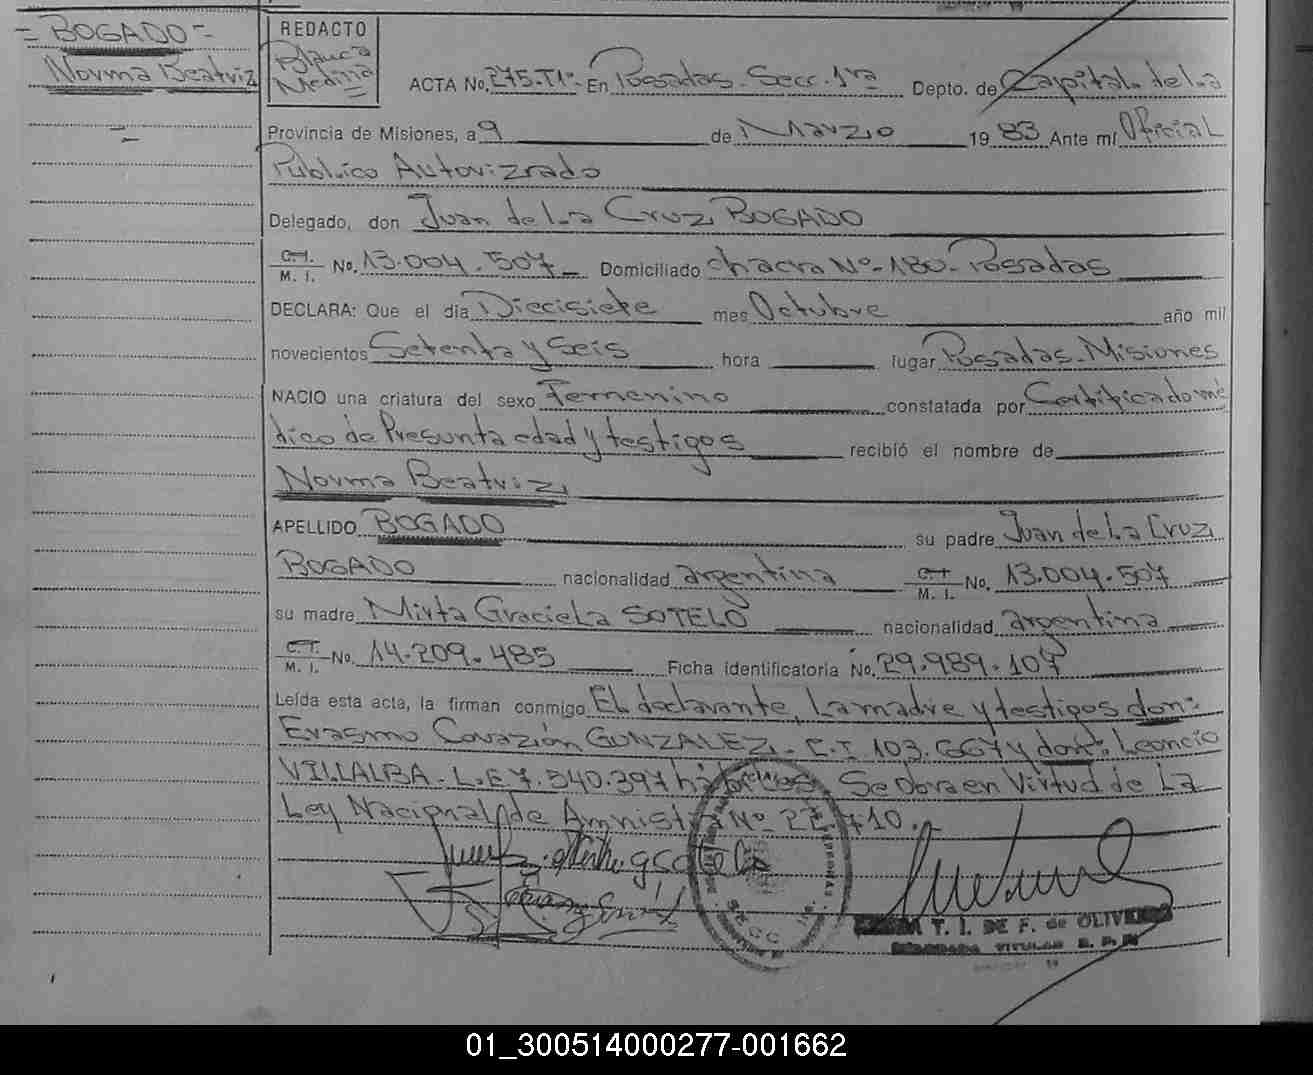 = BOGADO =
Norma Beatriz
REDACTO
Blanca
Medina
ACTA No. 275-T1º- En Posadas- Secc. 1ra Depto. de Capital de La
Provincia de Misiones, a 9 de Marzo 1983 Ante mí Oficial
Publico Autorizado
Delegado, don Juan de La Cruz BOGADO
C.I. M. I. No. 13.004.507 Domiciliado chacra Nº-180- Posadas
DECLARA: Que el día Diecisiete mes Octubre año mil
novecientos Setenta y Seis hora lugar Posadas-Misiones
NACIO una criatura del sexo Femenino constatada por Certificado mé
dico de Presunta edad y testigos recibió el nombre de
Norma Beatriz
APELLIDO BOGADO su padre Juan de La Cruz
BOGADO nacionalidad argentina C.I. M. I. No. 13.004.507
su madre Mirta Graciela SOTELO nacionalidad argentina
C.I. M. I. No. 14.209.485 Ficha identificatoria No. 29.989.107
Leída esta acta, la firman conmigo El declarante, La madre y testigos don:
Erasmo Corazón GONZALEZ- C.I. 103.667 y don: Leoncio
VILLALBA- L.E 7.540.397 hábiles Se Obra en Virtud de La
Ley Nacional de Amnistía Nº 22.710.-
T. I. DE F. de OLIVEIRA
TITULAR
01_300514000277-001662